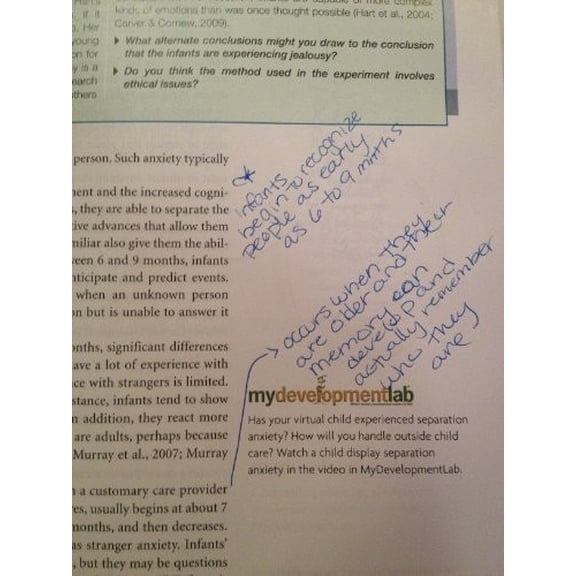 kinds of emotions than was once thought possible (Hart et al., 2004;
Carver & Cornew, 2009).
▶ What alternate conclusions might you draw to the conclusion
that the infants are experiencing jealousy?
▶ Do you think the method used in the experiment involves
ethical issues?
if it
. Her
young
on for
y is a
earch
thers
person. Such anxiety typically
ent and the increased cogni-
, they are able to separate the
ive advances that allow them
miliar also give them the abil-
een 6 and 9 months, infants
nticipate and predict events.
when an unknown person
on but is unable to answer it
onths, significant differences
ave a lot of experience with
ce with strangers is limited.
stance, infants tend to show
n addition, they react more
are adults, perhaps because
Murray et al., 2007; Murray
a customary care provider
es, usually begins at about 7
months, and then decreases.
as stranger anxiety. Infants'
, but they may be questions
* infants
begin to recognize
people as early
as 6 to 9 months
occurs when they
are older and their
memory can
develop and
actually remember
who they
are
mydevelopmentlab
Has your virtual child experienced separation
anxiety? How will you handle outside child
care? Watch a child display separation
anxiety in the video in MyDevelopmentLab.